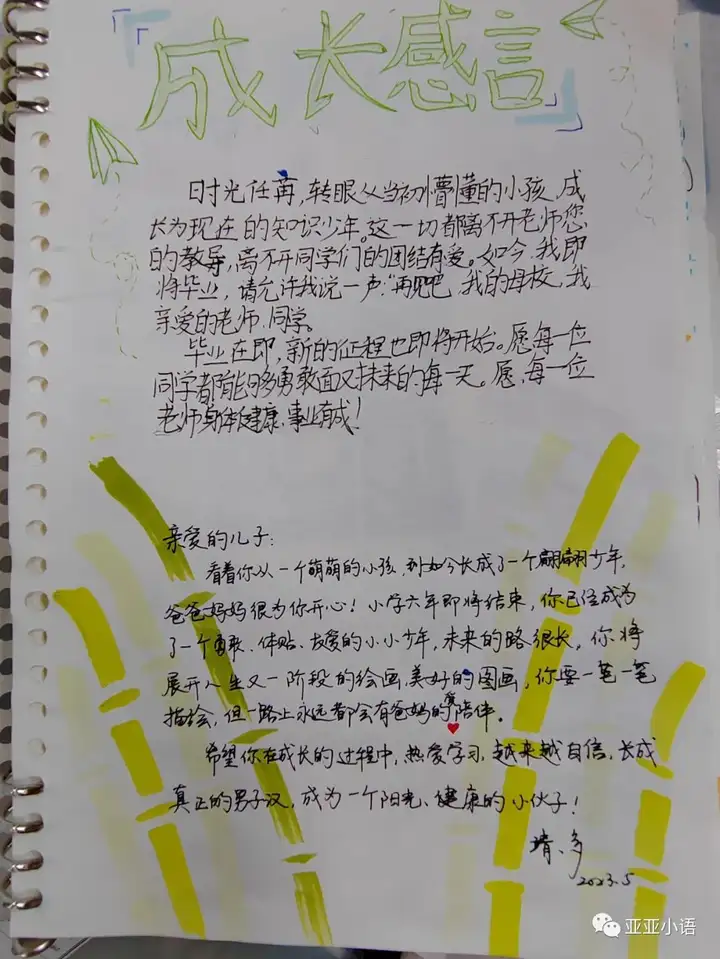 成长感言
时光任苒,转眼从当初懵懂的小孩,成
长为现在的知识少年。这一切都离不开老师您
的教导,离不开同学们的团结有爱。如今,我即
将毕业,请允许我说一声:"再见吧,我的母校,我
亲爱的老师、同学。
毕业在即,新的征程也即将开始。愿每一位
同学都能够勇敢面对未来的每一天。愿,每一位
老师身体健康、事业有成!
亲爱的儿子:
看着你从一个萌萌的小孩,到如今长成了一个翩翩少年,
爸爸妈妈很为你开心!小学六年即将结束,你已经成为
了一个勇敢、体贴、友爱的小小少年,未来的路很长,你将
展开人生又一阶段的绘画,美好的图画,你要一笔一笔
描绘,但一路上永远都会有爸妈的陪伴。
希望你在成长的过程中,热爱学习,越来越自信,长成
真正的男子汉,成为一个阳光、健康的小伙子!
2023.5
亚亚小语